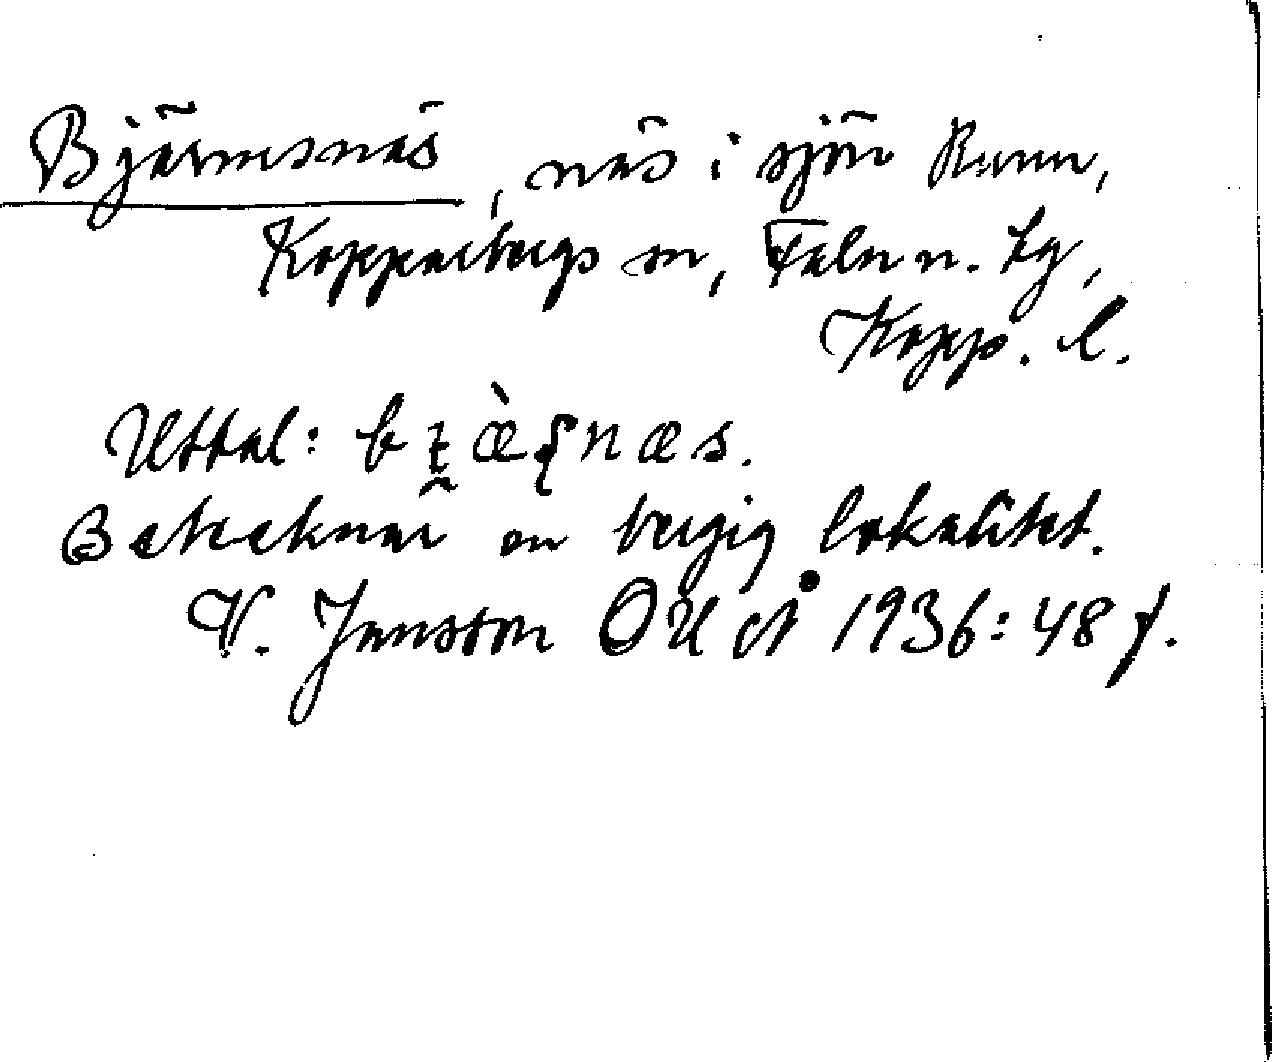 Bjärmsnäs, näs i sjön Runn,
Kopparbergs sn, Falu n. tg,
Kopp. l.
Uttal: bɪ̯æ̀ʂnæs.
Betecknar en bergig lokalitet.
V. Jansson OUÅ 1936:48 f.